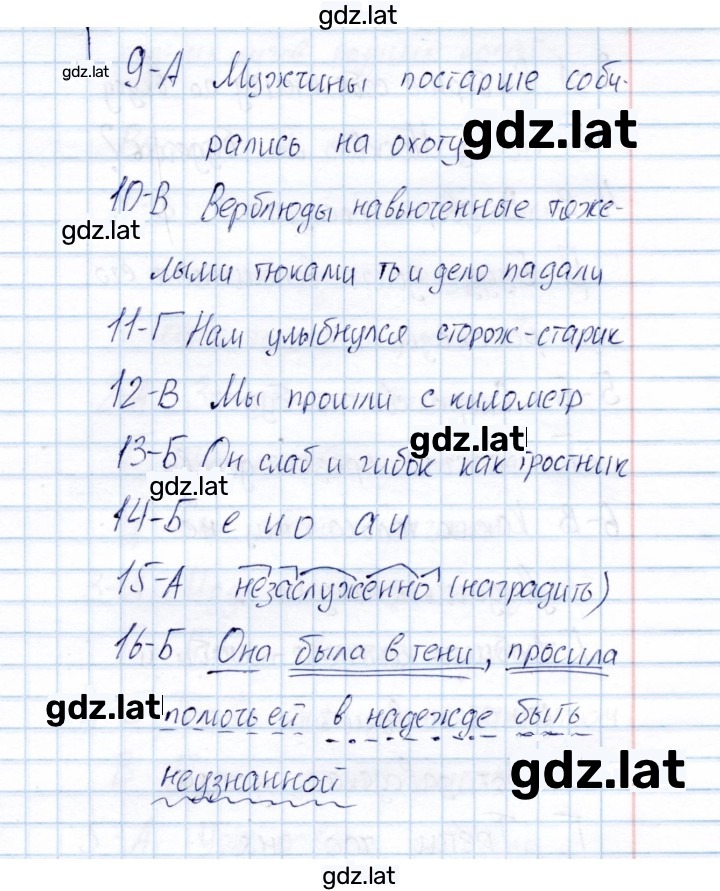 gdz.lat
gdz.lat
9-А Мужчины постарше соби-
рались на охоту
gdz.lat
10-В Верблюды навьюченные тоже-
gdz.lat
лыми тюками то и дело падали
11-Г Нам улыбнулся сторож-старик
12-В Мы прошли с километр
gdz.lat
13-Б Он слаб и гибок как тростник
gdz.lat
14-Б е и о а и
15-А незаслуженно (наградить)
16-Б Она была в тени, просила
gdz.lat
помочь ей в надежде быть
gdz.lat
неузнанной
gdz.lat